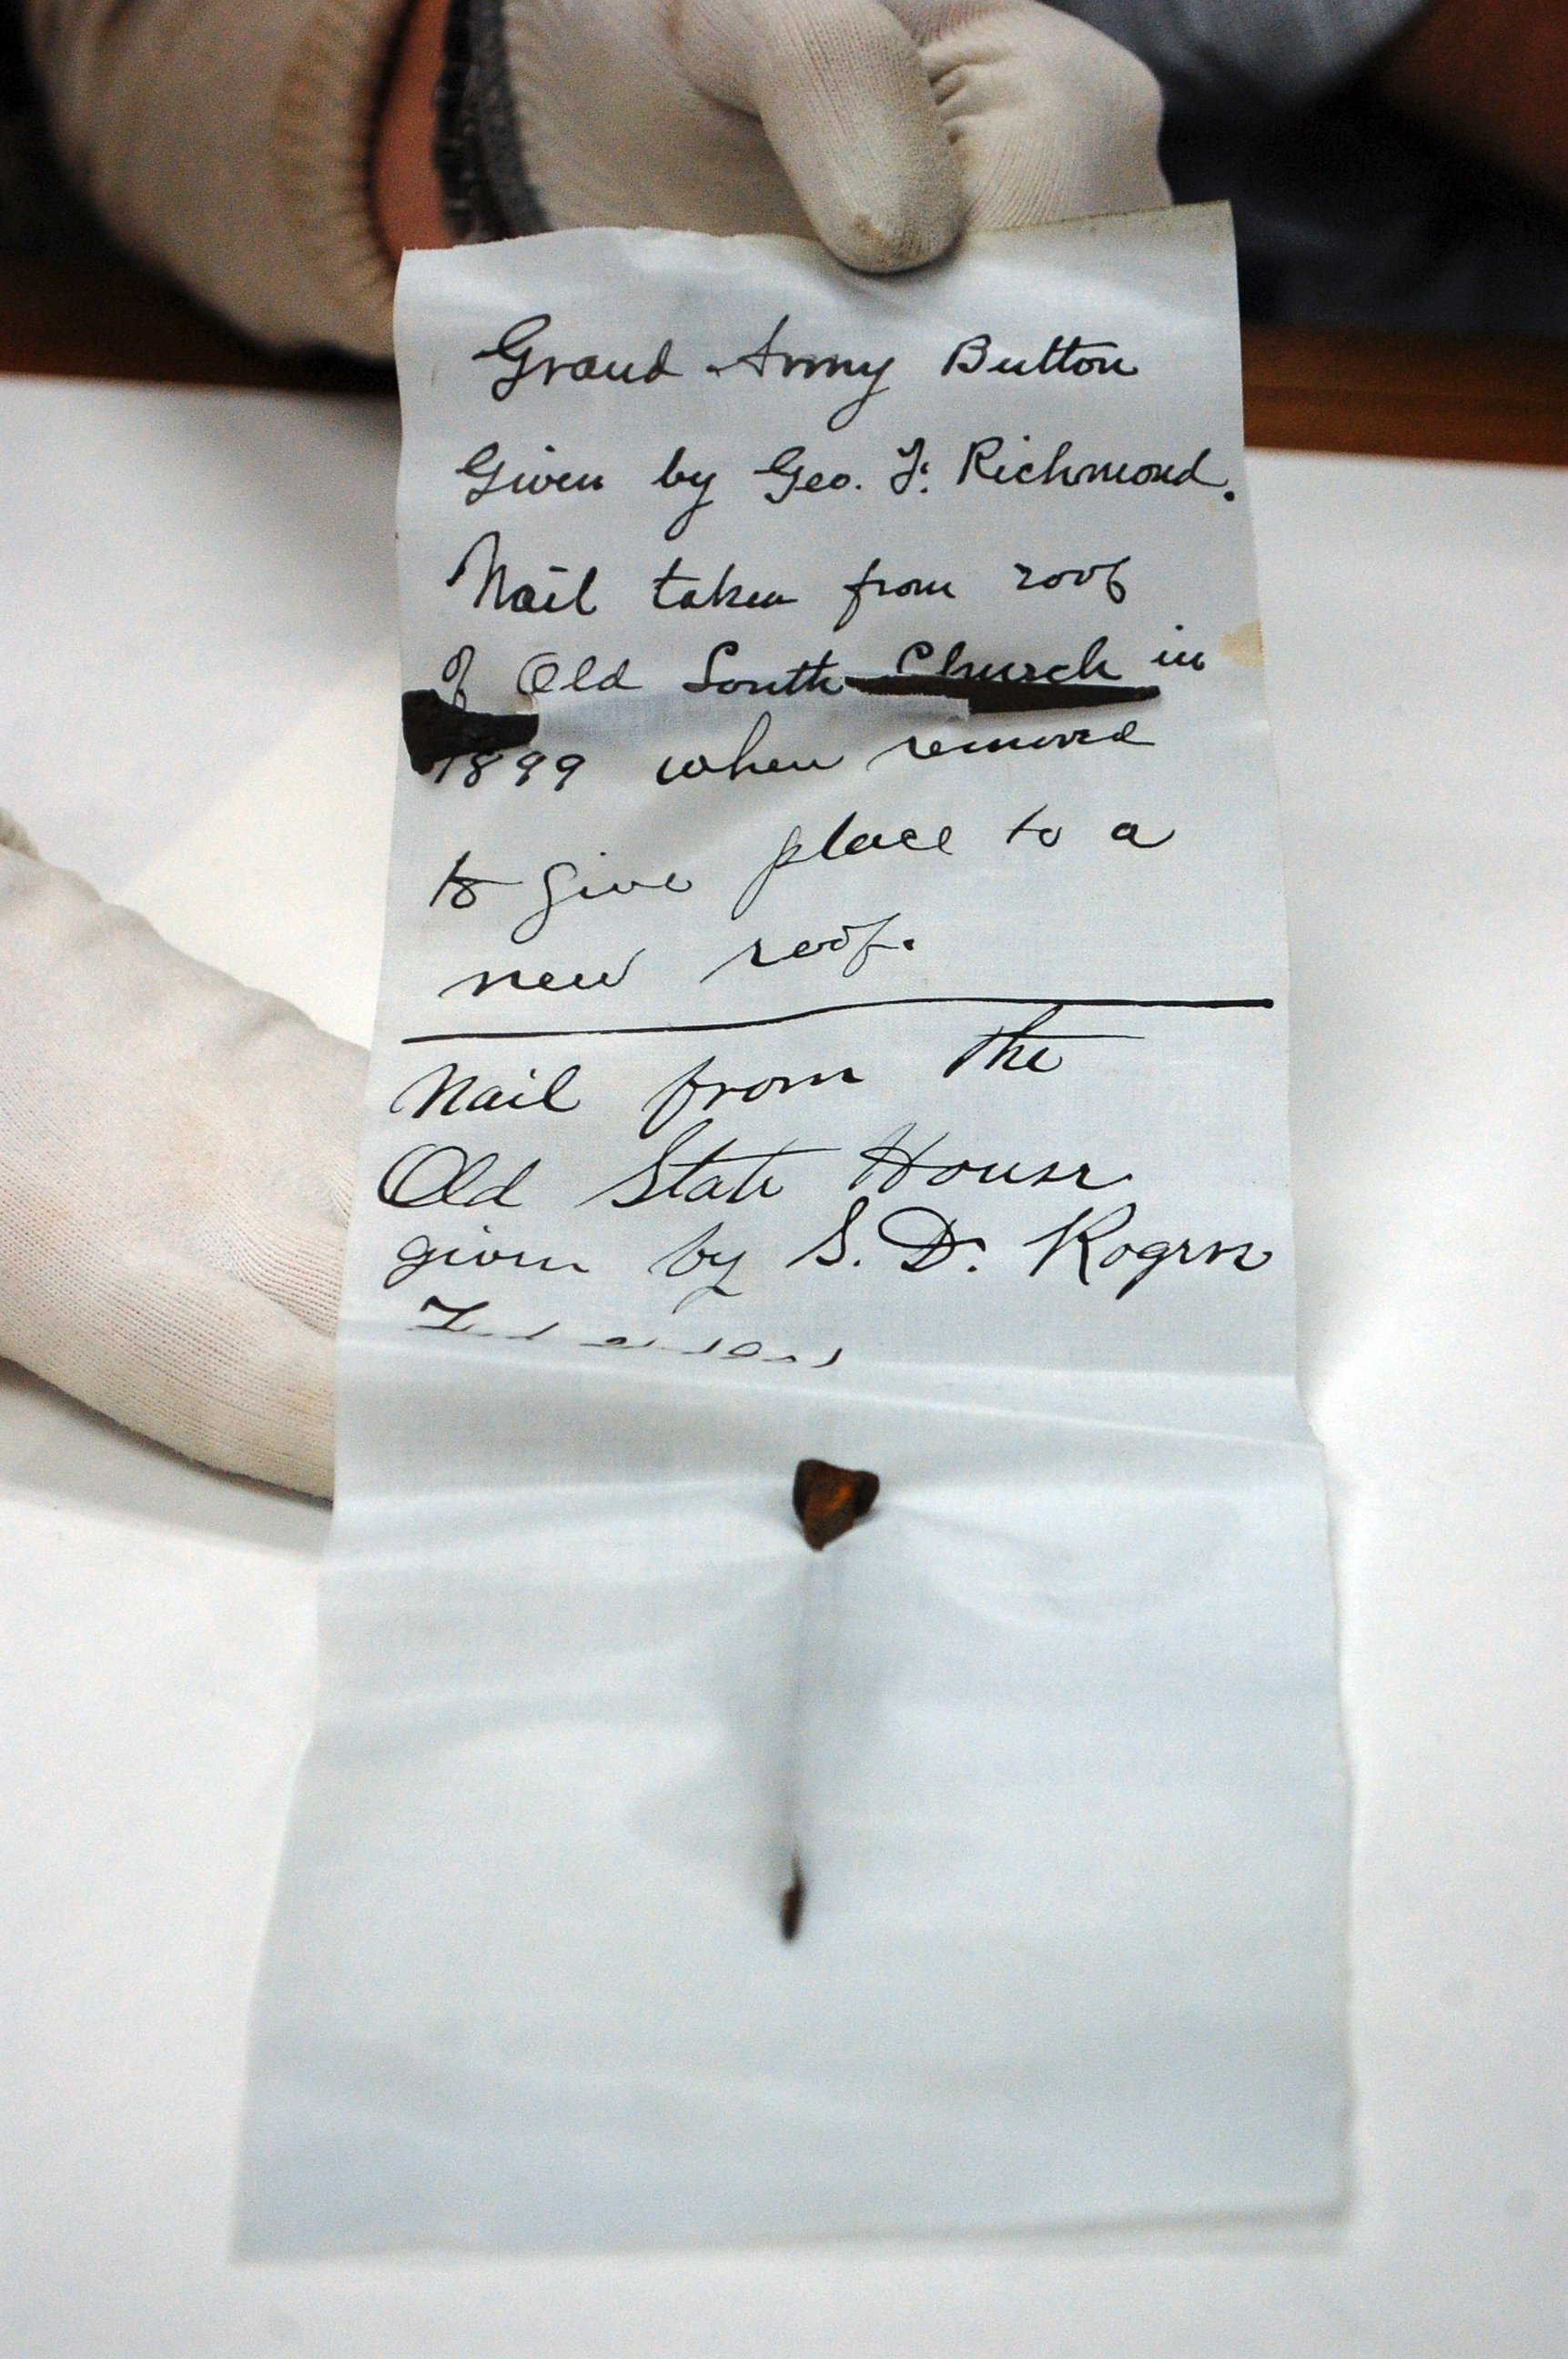 Grand Army Button
Given by Geo. F. Richmond.
Nail taken from roof
of Old South Church in
1899 when removed
to give place to a
new roof.
Nail from the
Old State House
given by S. D. Rogers